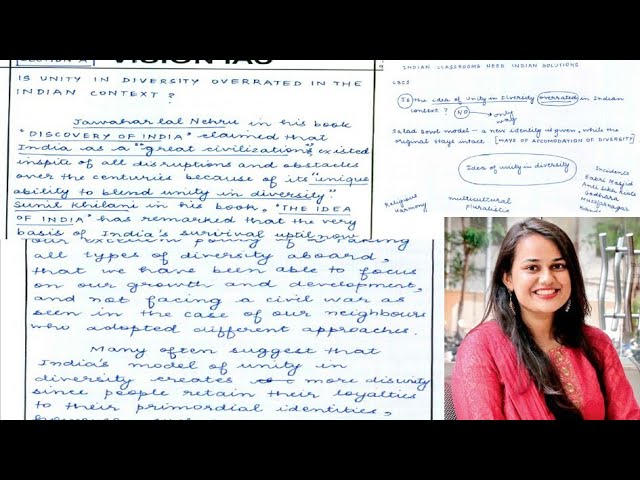 SECTION A
VISION IAS
IS UNITY IN DIVERSITY OVERRATED IN THE
INDIAN CONTEXT ?
Jawaharlal Nehru in his book
"DISCOVERY OF INDIA" claimed that
India as a "great civilization", existed
inspite of all disruptions and obstacles
over the centuries because of its "unique
ability to blend unity in diversity".
Sunil Khilani in his book, "THE IDEA
OF INDIA" has remarked that the very
basis of India's survival uptil now
all types of diversity aboard,
that we have been able to focus
on our growth and development,
and not facing a civil war as
seen in the case of our neighbours
who adopted different approaches.
Many often suggest that
India's model of unity in
diversity creates more disunity
since people retain their loyalties
to their primordial identities,
INDIAN CLASSROOMS NEED INDIAN SOLUTIONS
CBCS
Is the idea of unity in Diversity overrated in Indian
context ? NO → only way
Salad Bowl model - a new identity is given, while the
original stays intact [WAYS OF ACCOMODATION OF DIVERSITY]
Idea of unity in diversity
Incidents
Babri Masjid
Anti Sikh Riots
Godhara
Muzaffarnagar
Religious
Harmony
multicultural
Pluralistic